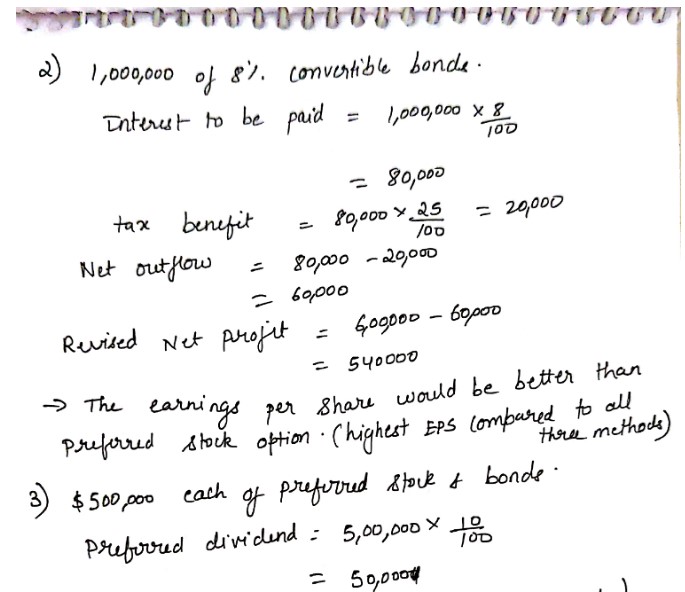 2) 1,000,000 of 8%. convertible bonds.
Interest to be paid = 1,000,000 x 8/100
= 80,000
tax benefit = 80,000 x 25/100 = 20,000
Net outflow = 80,000 - 20,000
= 60,000
Revised Net profit = 600,000 - 60,000
= 540000
→ The earnings per share would be better than
preferred stock option. (highest EPS compared to all
three methods)
3) $500,000 each of preferred stock & bonds.
Preferred dividend = 5,00,000 x 10/100
= 50,000